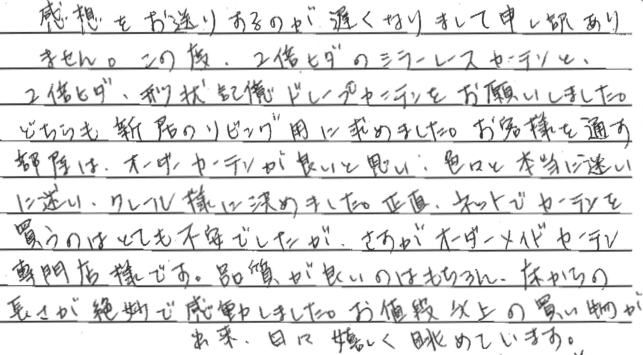 感想をお送りするのが遅くなりまして申し訳あり
ません。この度、2倍ヒダのミラーレースカーテンと、
2倍ヒダ、形状記憶ドレープカーテンをお願いしました。
どちらも新居のリビング用に求めました。お客様を通す
部屋は、オーダーカーテンが良いと思い、色々と本当に迷い
に迷い、クレール様に決めました。正直、ネットでカーテンを
買うのはとても不安でしたが、さすがオーダーメイドカーテン
専門店様です。品質が良いのはもちろん、床からの
長さが絶妙で感動しました。お値段以上の買い物が
出来、日々嬉しく眺めています。